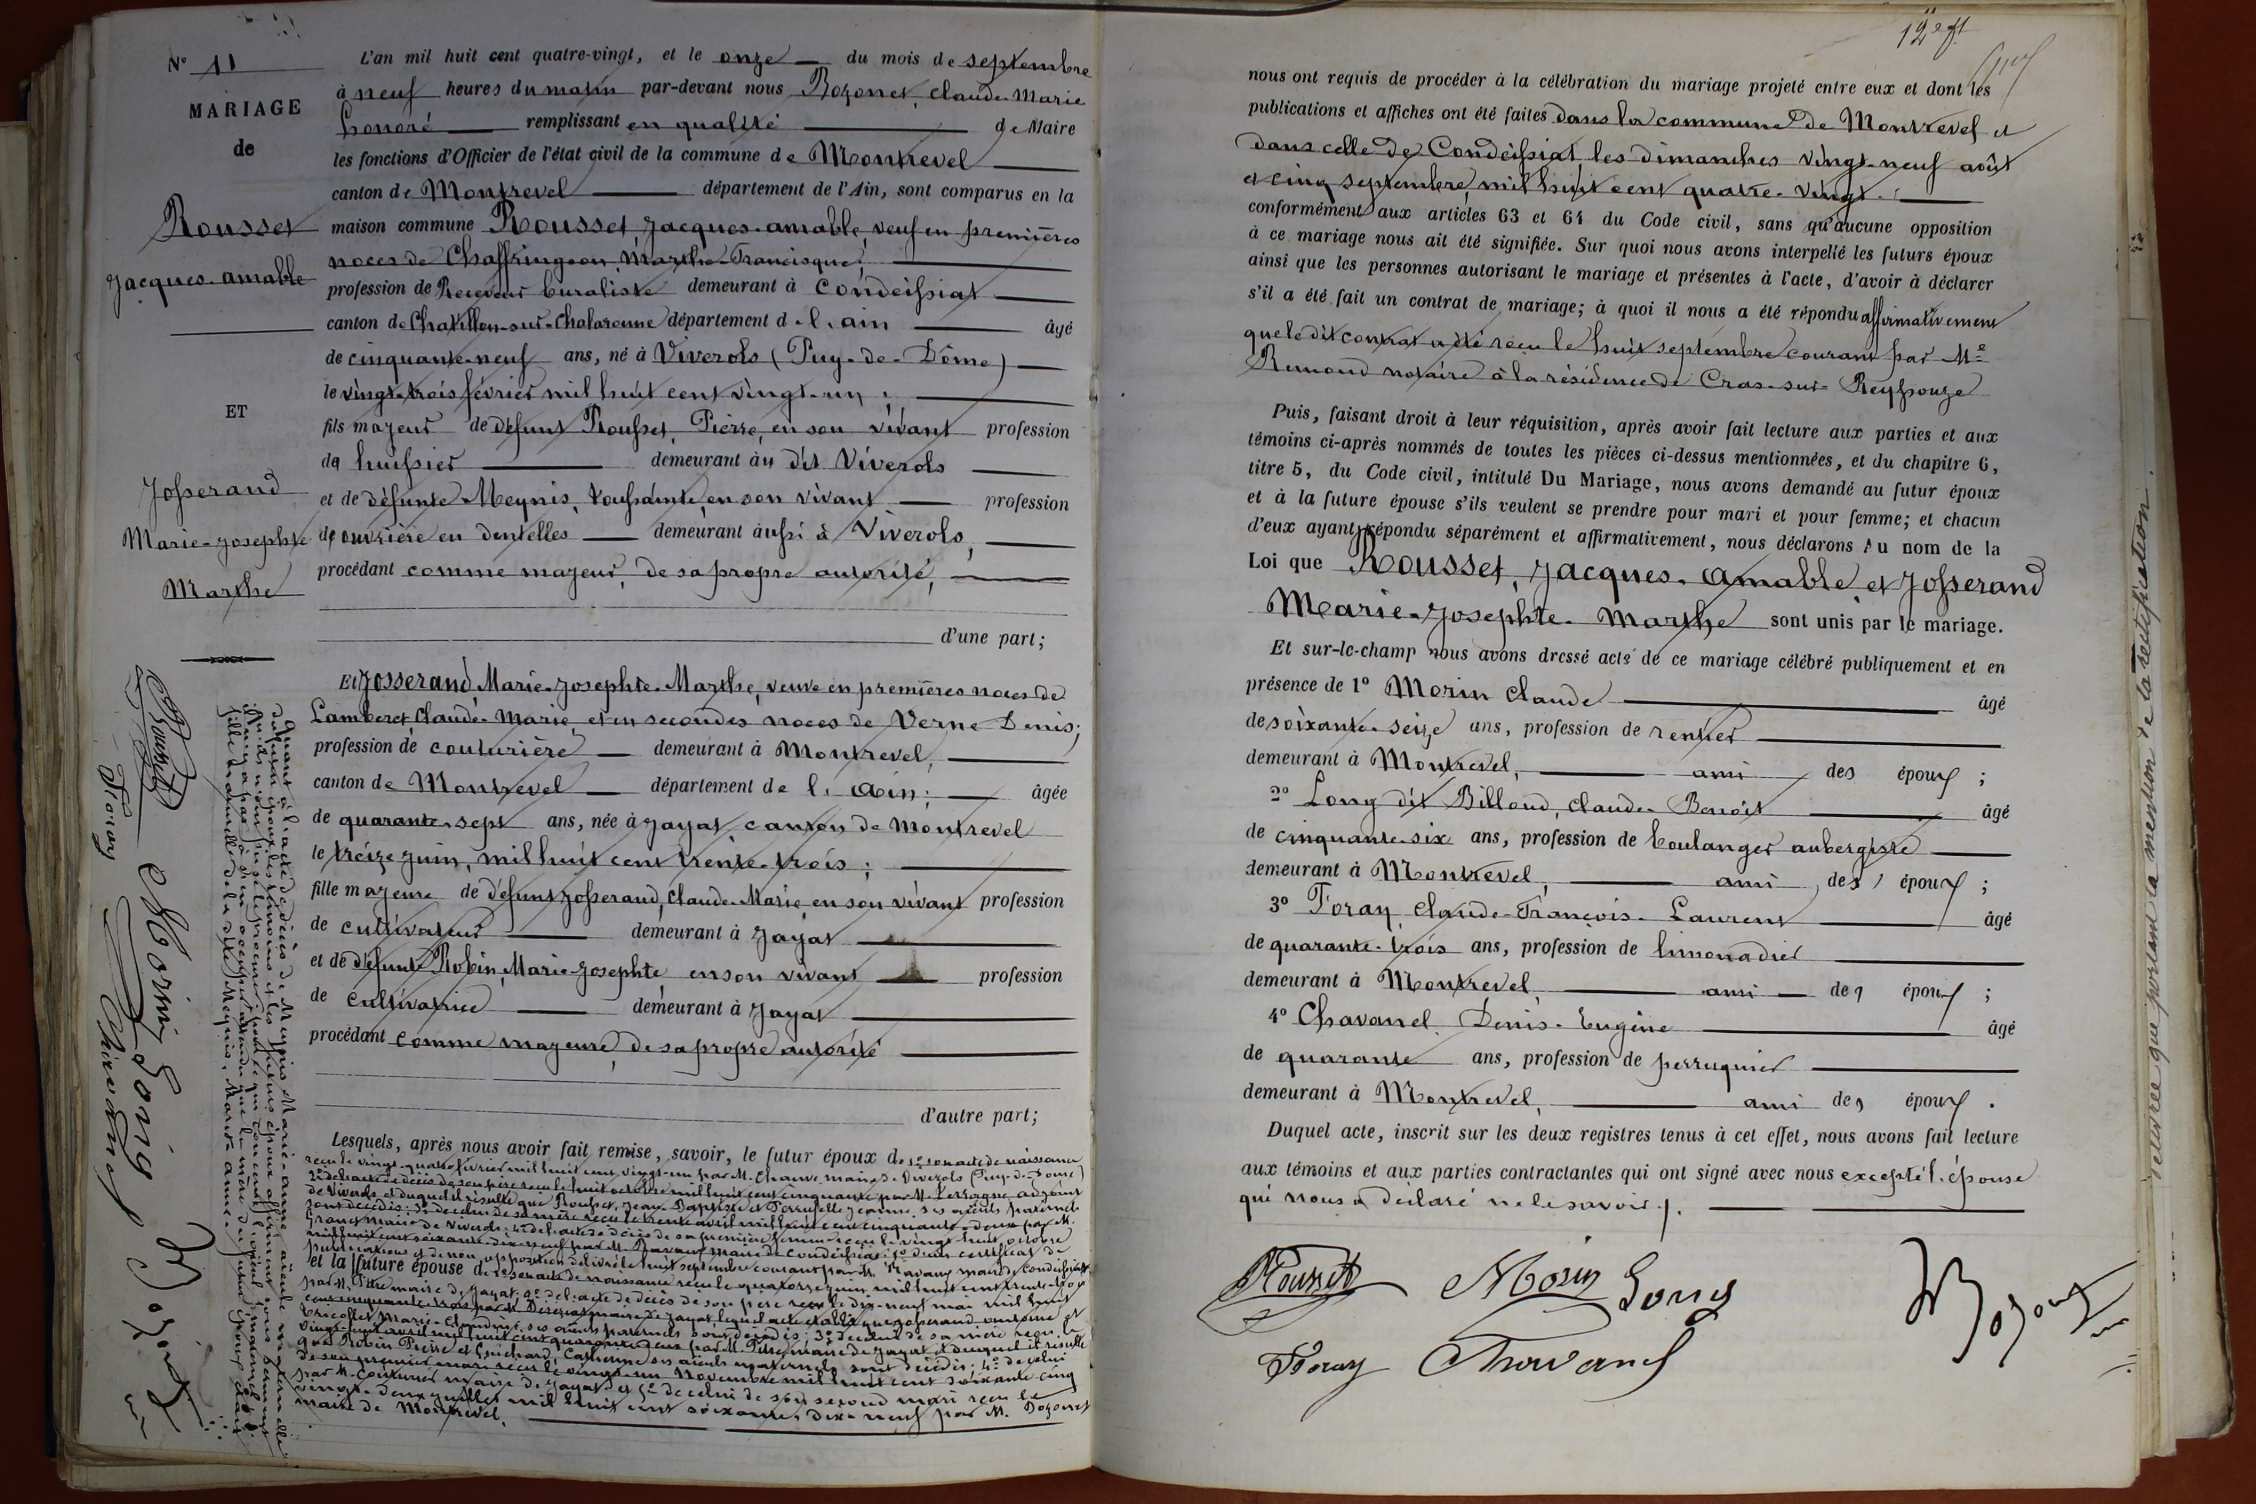 N° 11
MARIAGE
de
Rousset
Jacques-amable
ET
Josserand
Marie-Josephte
Marthe
L'an mil huit cent quatre-vingt, et le onze du mois de septembre
à neuf heures du matin par-devant nous Bozonet, Claude-Marie
honoré remplissant en qualité de Maire
les fonctions d'Officier de l'état civil de la commune de Montrevel
canton de Montrevel département de l'Ain, sont comparus en la
maison commune Rousset Jacques-amable, veuf en premières
noces de Chaffringeon, Marthe-Francisque,
profession de Receveur buraliste demeurant à Condeissiat
canton de Chatillon-sur-Chalaronne département de l'ain âgé
de cinquante-neuf ans, né à Viverols (Puy-de-Dôme)
le vingt-trois février mil huit cent vingt-un ;
fils majeur de défunt Rousset, Pierre, en son vivant profession
de huissier demeurant au dit Viverols
et de défunte Meynis, toussainte, en son vivant profession
de ouvrière en dentelles demeurant aussi à Viverols,
procédant comme majeur, de sa propre autorité,
d'une part;
Et Josserand, Marie-Josephte-Marthe, veuve en premières noces de
Lamberet Claude-Marie, et en secondes noces de Verne Denis;
profession de couturière demeurant à Montrevel,
canton de Montrevel département de l'ain; âgée
de quarante-sept ans, née à Jayat, canton de Montrevel
le treize juin, mil huit cent trente-trois ;
fille majeure de défunt Josserand, Claude-Marie, en son vivant profession
de cultivateur demeurant à Jayat
et de défunte Robin, Marie-Josephte, en son vivant profession
de cultivatrice demeurant à Jayat
procédant comme majeure, de sa propre autorité
d'autre part;
Lesquels, après nous avoir fait remise, savoir, le futur époux de 1° son acte de naissance
reçu le vingt-quatre février mil huit cent vingt-un par M. Chauve, maire de Viverols (Puy-de-Dôme)
2° de l'acte de décès de son père reçu le huit octobre mil huit cent cinquante par M. adjoint
de Viverols, et duquel il résulte que Rousset, Jean-Baptiste et Jeanne, ses aïeuls paternels
sont décédés; 3° de celui de sa mère reçu le trente avril mil huit cent cinquante-deux par M.
maire de Viverols; 4° de l'acte de décès de sa première femme reçu le vingt-huit octobre
mil huit cent soixante-dix-neuf par M. Ravaux maire de Condeissiat; 5° d'un certificat de
publications et de non opposition délivré le huit septembre courant par M. Ravaux maire de Condeissiat
et la future épouse de 1° son acte de naissance reçu le quatorze juin mil huit cent trente-trois
par M. Pitre maire de Jayat; 2° de l'acte de décès de son père reçu le dix-neuf mai mil huit
cent cinquante-trois par M. maire de Jayat lequel acte établit que Josserand antoine et
Marie-Claudine, ses aïeuls paternels sont décédés; 3° de celui de sa mère reçu le
vingt-huit avril mil huit cent quarante-deux par M. Pitre maire de Jayat et duquel il résulte
que Robin Pierre et Guichard, Catherine ses aïeuls maternels sont décédés; 4° de celui
de son premier mari reçu le vingt-un novembre mil huit cent soixante-cinq
par M. Couturier maire de Jayat; et 5° de celui de son second mari reçu le
vingt-deux juillet mil huit cent soixante-dix-neuf par M. Bozonet
maire de Montrevel.
Quant à l'acte de décès de Meynis Marie-anne aïeule maternelle
du futur époux, les témoins et les futurs époux affirment sous serment
qu'ils n'ont pu se le procurer; pour ce qui concerne l'aïeul maternel
il n'y a pas à s'en occuper attendu que la mère du futur époux était
fille naturelle de la dite Meynis, Marie-anne.
Rousset Morin Long
Foray Chavanel Bozonet
12e ft
nous ont requis de procéder à la célébration du mariage projeté entre eux et dont les
publications et affiches ont été faites dans la commune de Montrevel et
dans celle de Condeissiat les dimanches vingt-neuf août
et cinq septembre mil huit cent quatre-vingt.
conformément aux articles 63 et 64 du Code civil, sans qu'aucune opposition
à ce mariage nous ait été signifiée. Sur quoi nous avons interpellé les futurs époux
ainsi que les personnes autorisant le mariage et présentes à l'acte, d'avoir à déclarer
s'il a été fait un contrat de mariage; à quoi il nous a été répondu affirmativement
que le dit contrat a été reçu le huit septembre courant par Me
Remond notaire à la résidence de Cras-sur-Reyssouze
Puis, faisant droit à leur réquisition, après avoir fait lecture aux parties et aux
témoins ci-après nommés de toutes les pièces ci-dessus mentionnées, et du chapitre 6,
titre 5, du Code civil, intitulé Du Mariage, nous avons demandé au futur époux
et à la future épouse s'ils veulent se prendre pour mari et pour femme; et chacun
d'eux ayant répondu séparément et affirmativement, nous déclarons Au nom de la
Loi que Rousset, Jacques-Amable et Josserand
Marie-Josephte-Marthe sont unis par le mariage.
Et sur-le-champ nous avons dressé acte de ce mariage célébré publiquement et en
présence de 1° Morin Claude âgé
de soixante-seize ans, profession de rentier
demeurant à Montrevel, ami des époux ;
2° Long dit Billoud, Claude-Benoit âgé
de cinquante-six ans, profession de boulanger aubergiste
demeurant à Montrevel, ami des époux ;
3° Foray Claude-François-Laurent âgé
de quarante-trois ans, profession de limonadier
demeurant à Montrevel, ami des époux ;
4° Chavanel Denis-Eugène âgé
de quarante ans, profession de perruquier
demeurant à Montrevel, ami des époux .
Duquel acte, inscrit sur les deux registres tenus à cet effet, nous avons fait lecture
aux témoins et aux parties contractantes qui ont signé avec nous excepté l'épouse
qui nous a déclaré ne le savoir.
Rousset Morin Long Bozonet
Foray Chavanel
délivrée que portant la mention de la rectification.